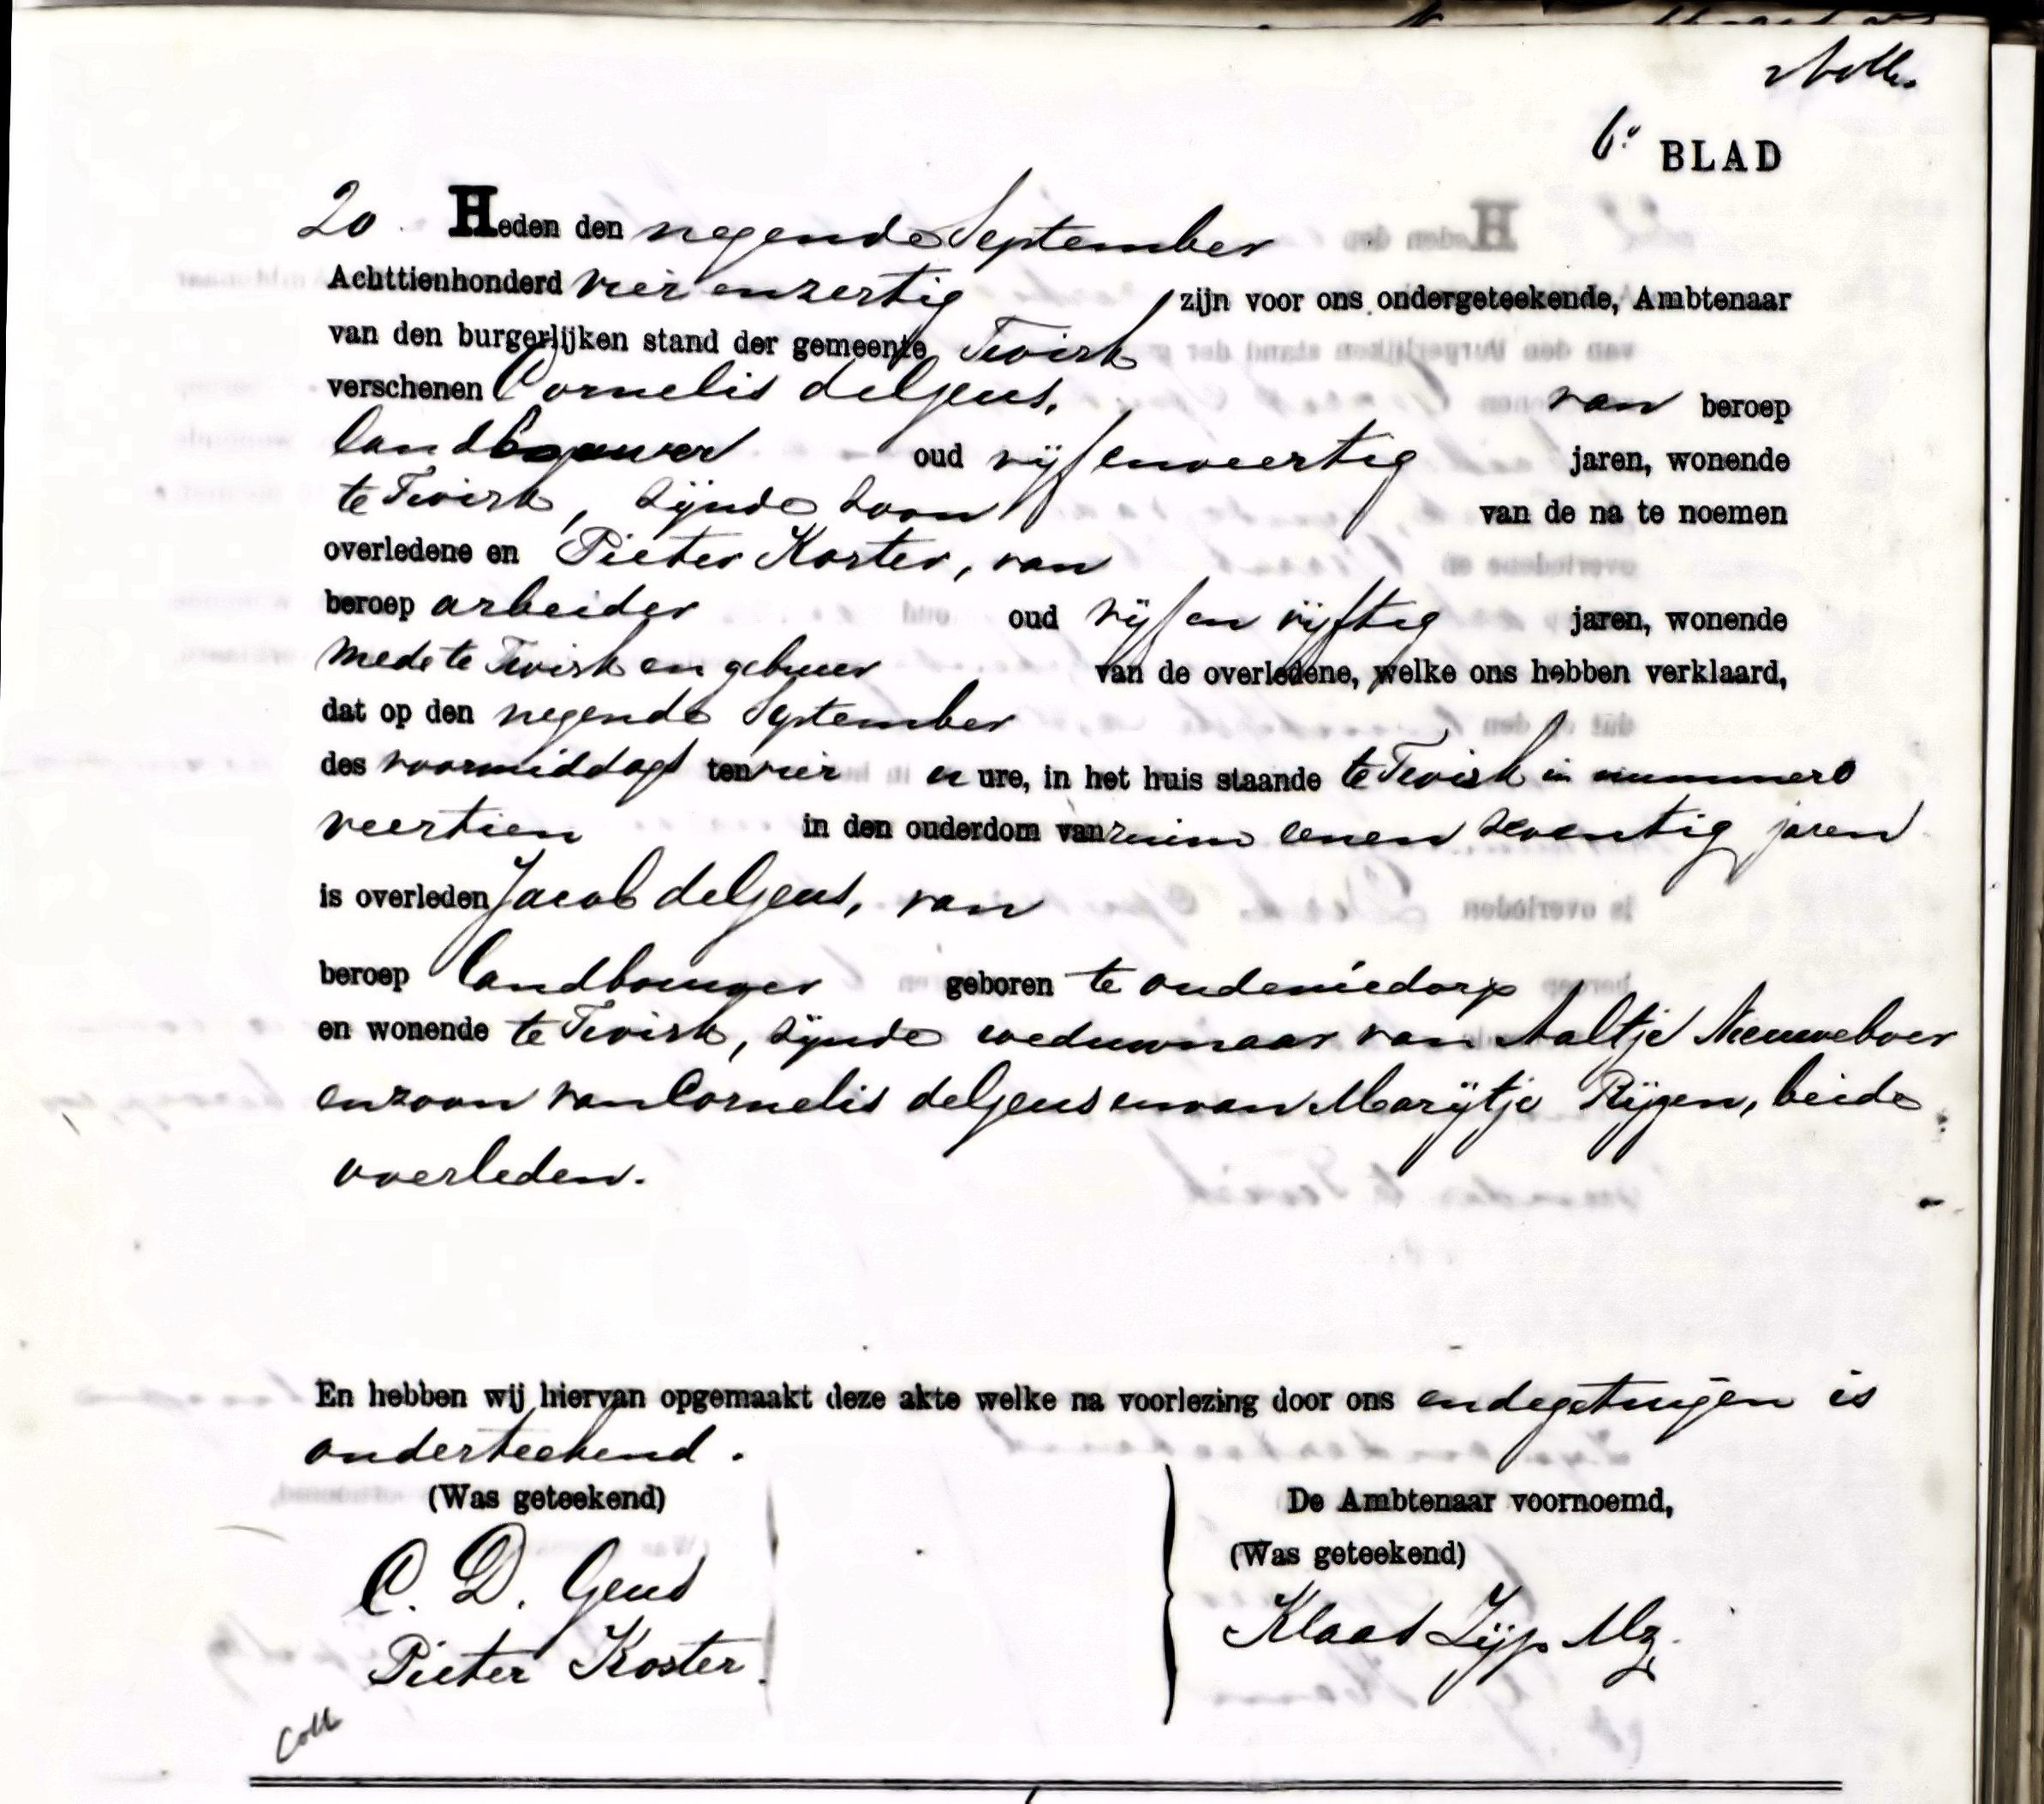 6e BLAD
20 Heden den negende September
Achttienhonderd vier en zertig zijn voor ons ondergeteekende, Ambtenaar
van den burgerlijken stand der gemeente Twisk
verschenen Cornelis de Geus, van beroep
landbouwer oud vijf en veertig jaren, wonende
te Twisk, zijnde zoon van de na te noemen
overledene en Pieter Koster, van
beroep arbeider oud vijf en vijftig jaren, wonende
mede te Twisk en gebuur van de overledene, welke ons hebben verklaard,
dat op den negende September
des voormiddags ten vier u ure, in het huis staande te Twisk in nummero
veertien in den ouderdom van ruim eenen zeventig jaren
is overleden Jacob de Geus, van
beroep landbouwer geboren te oudeniedorp
en wonende te Twisk, zijnde weduwnaar van Aaltje Nieuweboer
en zoon van Cornelis de Geus en van Marijtje Rijpen, beide
overleden.
En hebben wij hiervan opgemaakt deze akte welke na voorlezing door ons en de getuigen is
onderteekend.
(Was geteekend) De Ambtenaar voornoemd,
C. D. Geus (Was geteekend)
Pieter Koster. Klaas Zijp Mz.
Coll